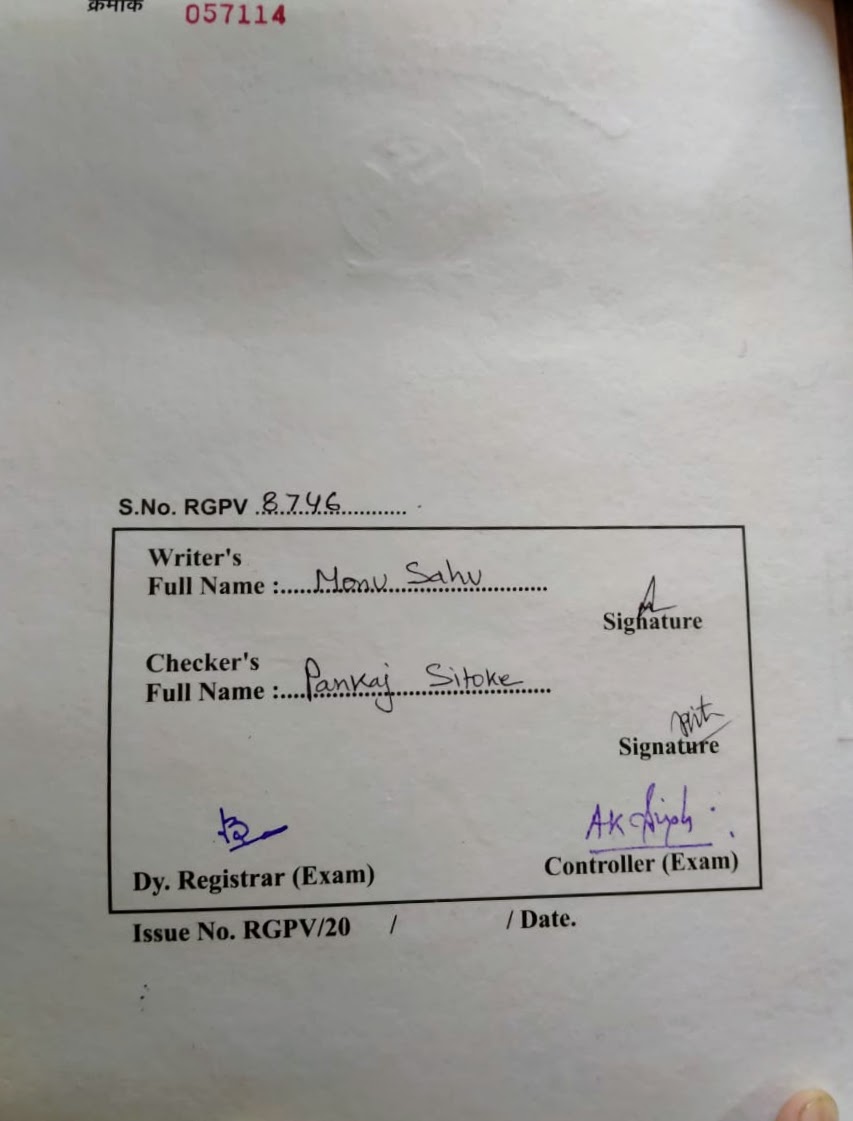 क्रमांक 057114
S.No. RGPV 8746
Writer's
Full Name : Monu Sahu
Signature
Checker's
Full Name : Pankaj Sitoke
Signature
AK Singh
Dy. Registrar (Exam) Controller (Exam)
Issue No. RGPV/20 / / Date.